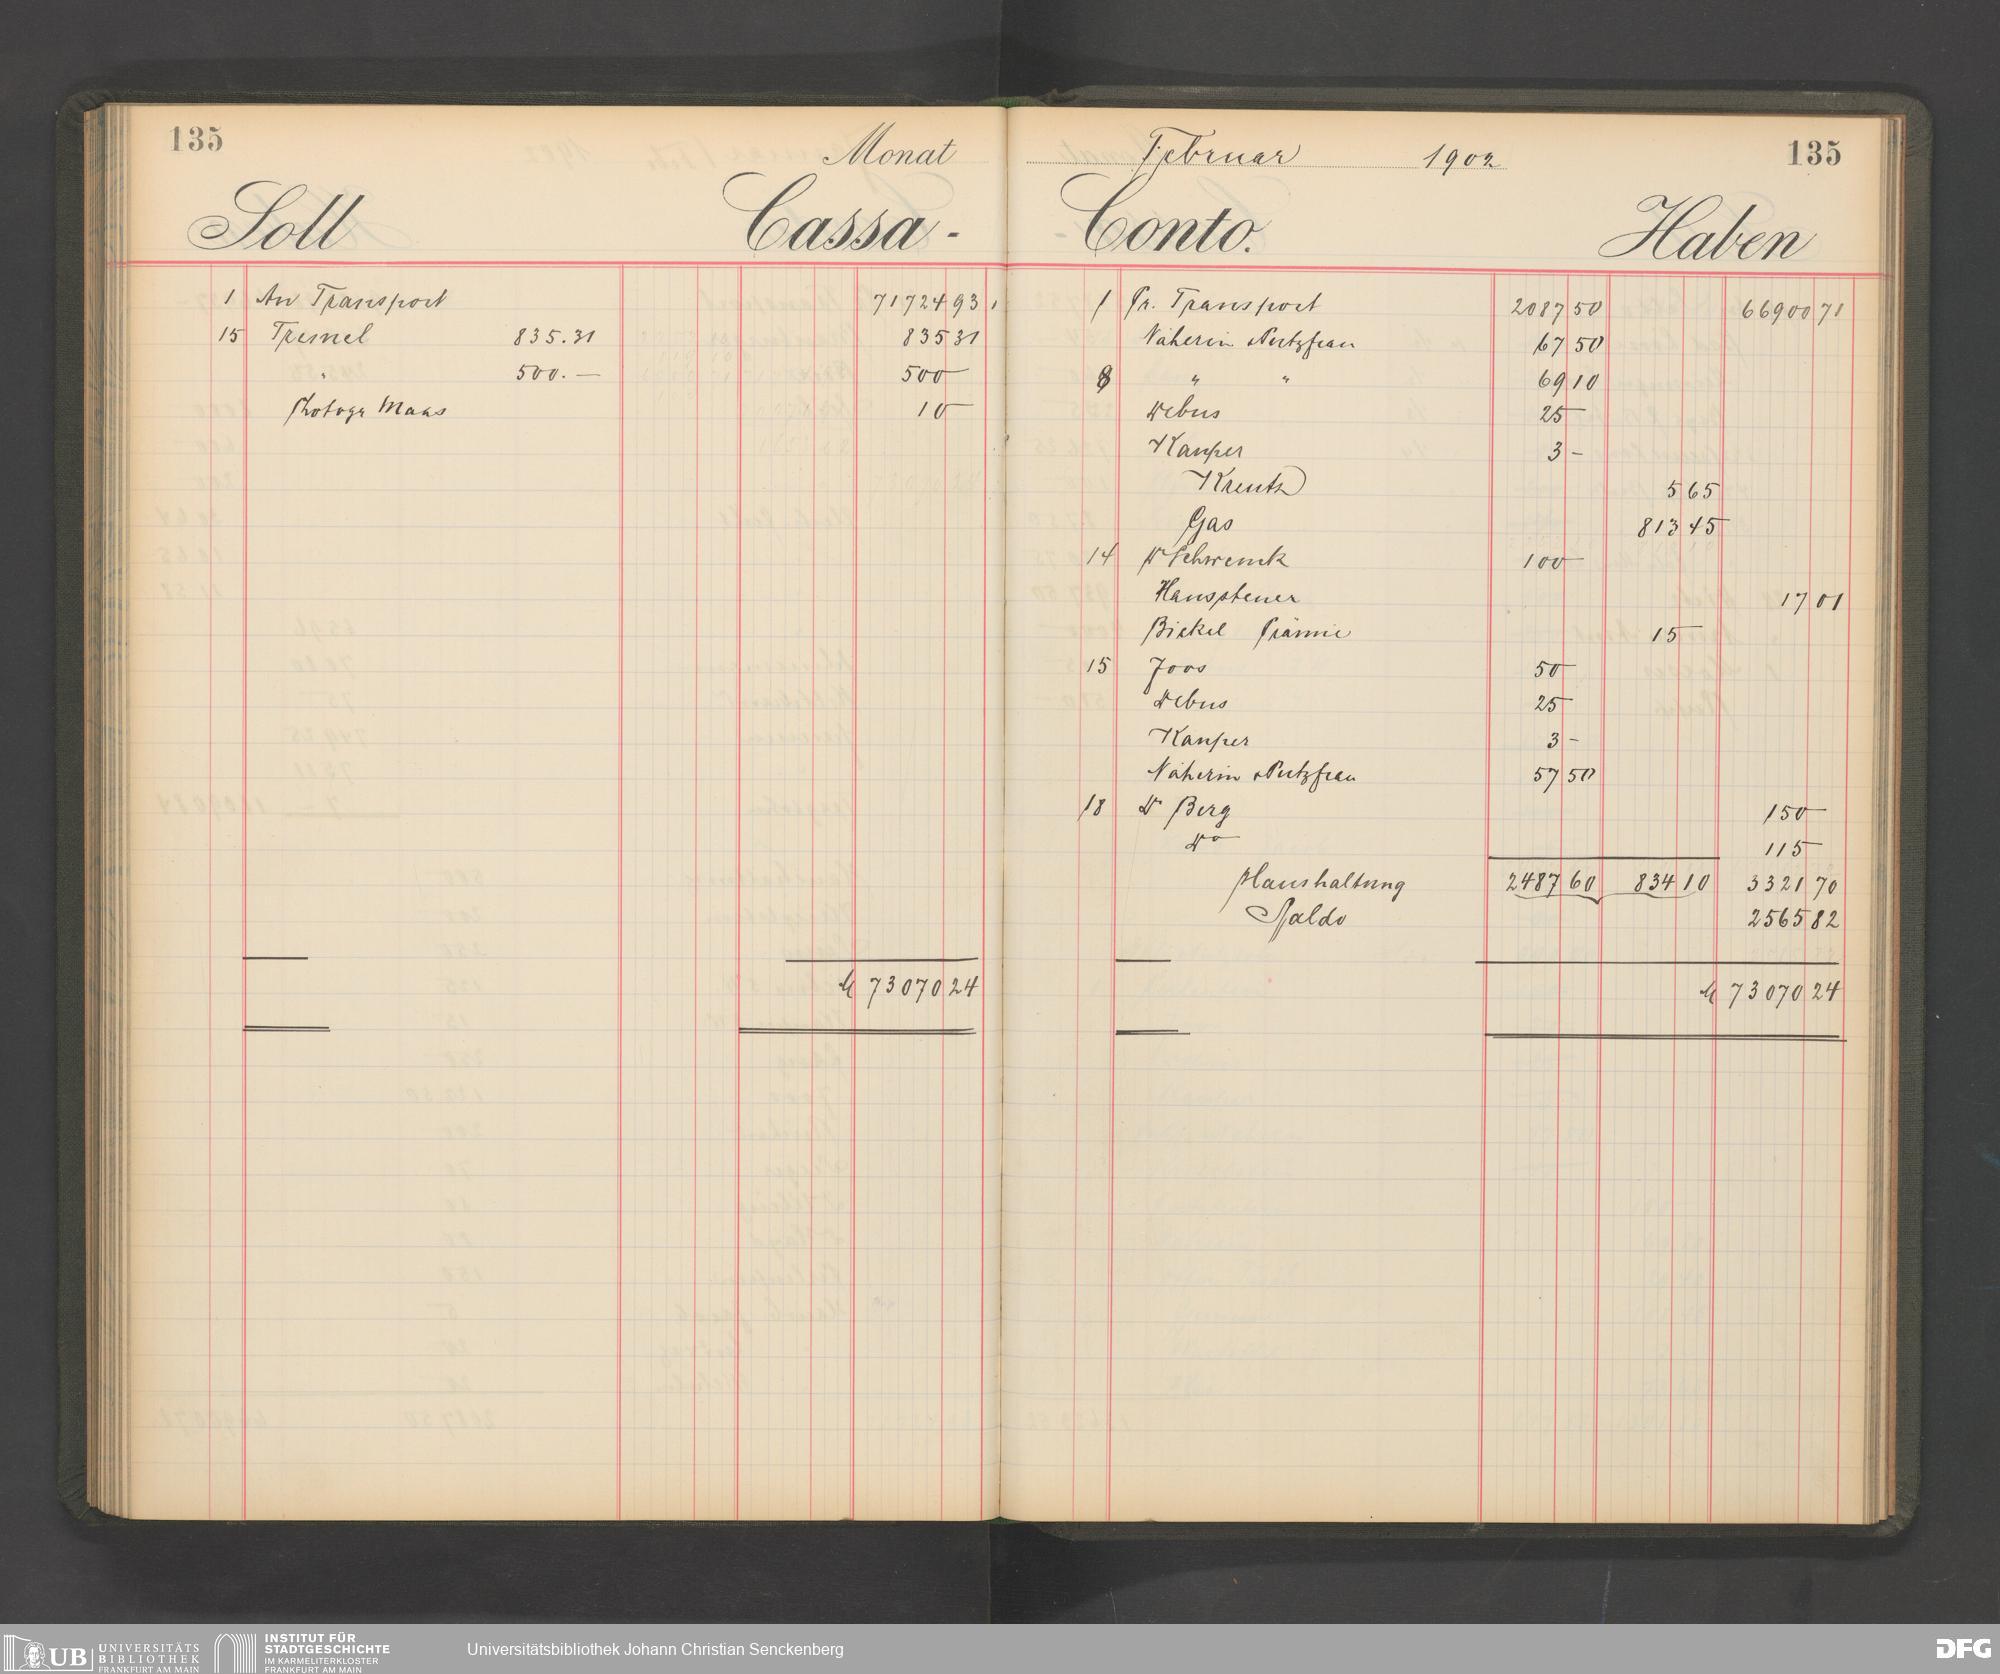 135
Monat Februar 1902
135
Soll Cassa-Conto. Haben
1 An Transport 71724 93
15 Tresnel 835.31 835 31
" 500.— 500 —
Photogr Maas 10 —
M 73070 24
1 Pr. Transport 2087 50 66900 71
Näherin & Putzfrau 67 50
8 " " 69 10
Debus 25 —
Kanper 3 –
Kreutz 5 65
Gas 813 45
14 Dr Schwenck 100 —
Haussteuer 17 01
Bickel Prämie 15 —
15 Joos 50 —
Debus 25 —
Kanper 3 –
Näherin & Putzfrau 57 50
18 Dr Berg 150 —
Do 115 —
Haushaltung 2487 60 834 10 3321 70
Saldo 2565 82
M 73070 24
UB UNIVERSITÄTS
BIBLIOTHEK
FRANKFURT AM MAIN
INSTITUT FÜR
STADTGESCHICHTE
IM KARMELITERKLOSTER
FRANKFURT AM MAIN
Universitätsbibliothek Johann Christian Senckenberg
DFG